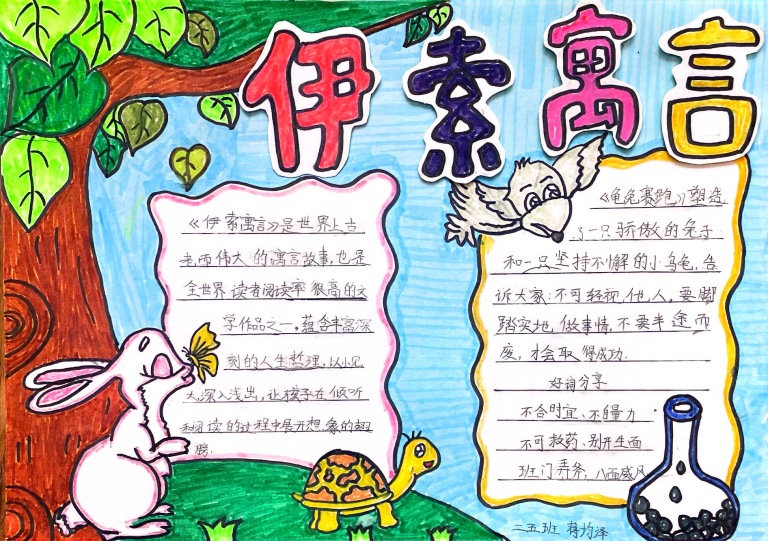 伊索寓言
《伊索寓言》是世界上古
老而伟大的寓言故事,也是
全世界读者阅读率很高的文
学作品之一。蕴含丰富深
刻的人生哲理,以小见
大,深入浅出,让孩子在倾听
和阅读的过程中展开想象的翅
膀。
《龟兔赛跑》塑造
了一只骄傲的兔子
和一只坚持不懈的小乌龟,告
诉大家:不可轻视他人,要脚
踏实地,做事情,不要半途而
废,才会取得成功.
好词分享
不合时宜、不自量力
不可救药、别开生面
班门弄斧,八面威风
二五班 蒋均泽